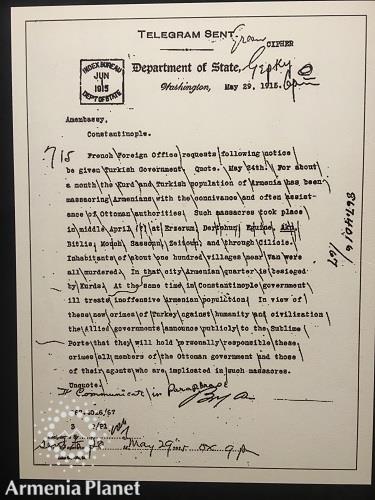 TELEGRAM SENT.
Green CIPHER
INDEX BUREAU
JUN
1
1915
DEPT OF STATE
Department of State,
Washington, May 29, 1915.
Amembassy,
Constantinople.
715
French Foreign Office requests following notice
be given Turkish Government. Quote. May 24th. For about
a month the Kurd and Turkish population of Armenia has been
massacring Armenians with the connivance and often assist-
ance of Ottoman authorities. Such massacres took place
in middle April at Erzerum, Dertchun, Eguine, Akn,
Bitlis, Mouch, Sassoun, Zeitoun, and through Cilicia.
Inhabitants of about one hundred villages near Van were
all murdered. In that city Armenian quarter is besieged
by Kurds. At the same time in Constantinople government
ill treats inoffensive Armenian population. In view of
these new crimes of Turkey against humanity and civilization
the Allied governments announce publicly to the Sublime
Porte that they will hold personally responsible these
crimes all members of the Ottoman government and those
of their agents who are implicated in such massacres.
Unquote.
Communicate in Paraphrase
867.4016/67
May 29
Armenia Planet